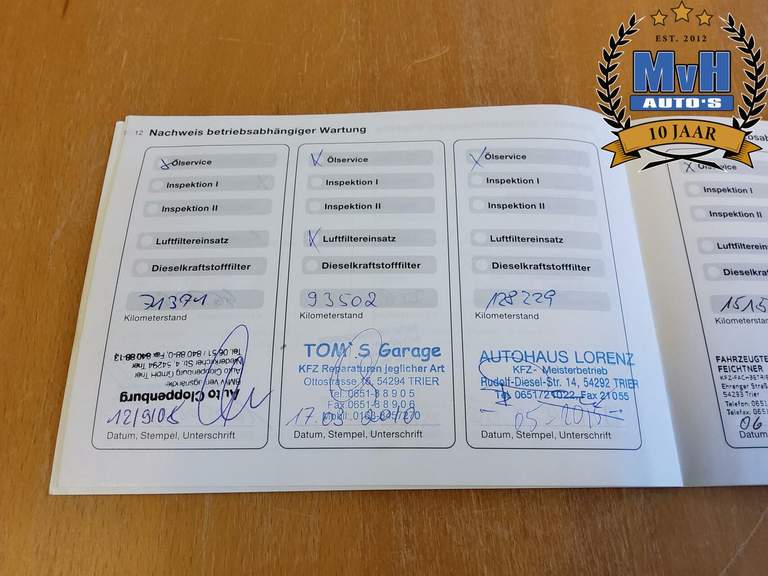 EST. 2012
MvH
AUTO'S
10 JAAR
12 Nachweis betriebsabhängiger Wartung
Ölservice
Inspektion I
Inspektion II
Luftfiltereinsatz
Dieselkraftstofffilter
71371
Kilometerstand
Auto Cloppenburg
BMW Vertragshändler
Auto Cloppenburg GmbH Trier
Niederkircher Str. 4, 54294 Trier
Tel. 06 51 / 840 88-0, Fax 840 88-13
12/9/08
Datum, Stempel, Unterschrift
Ölservice
Inspektion I
Inspektion II
Luftfiltereinsatz
Dieselkraftstofffilter
93502
Kilometerstand
TOM`S Garage
KFZ Reparaturen jeglicher Art
Ottostrasse 16, 54294 TRIER
Tel. 0651-8 8 9 0 5
Fax 0651-8 8 9 0 6
Mobil:
17.03
Datum, Stempel, Unterschrift
Ölservice
Inspektion I
Inspektion II
Luftfiltereinsatz
Dieselkraftstofffilter
128229
Kilometerstand
AUTOHAUS LORENZ
KFZ- Meisterbetrieb
Rudolf-Diesel-Str. 14, 54292 TRIER
Tel. 0651/21022, Fax 21055
Datum, Stempel, Unterschrift
Ölservice
Inspektion I
Inspektion II
Luftfilterein
Dieselkra
1515
Kilometerstand
FAHRZEUGTE
FEICHTNER
Ehranger Straße
54293 Trier
Telefon: 0651
Telefax: 0651
06
Datum